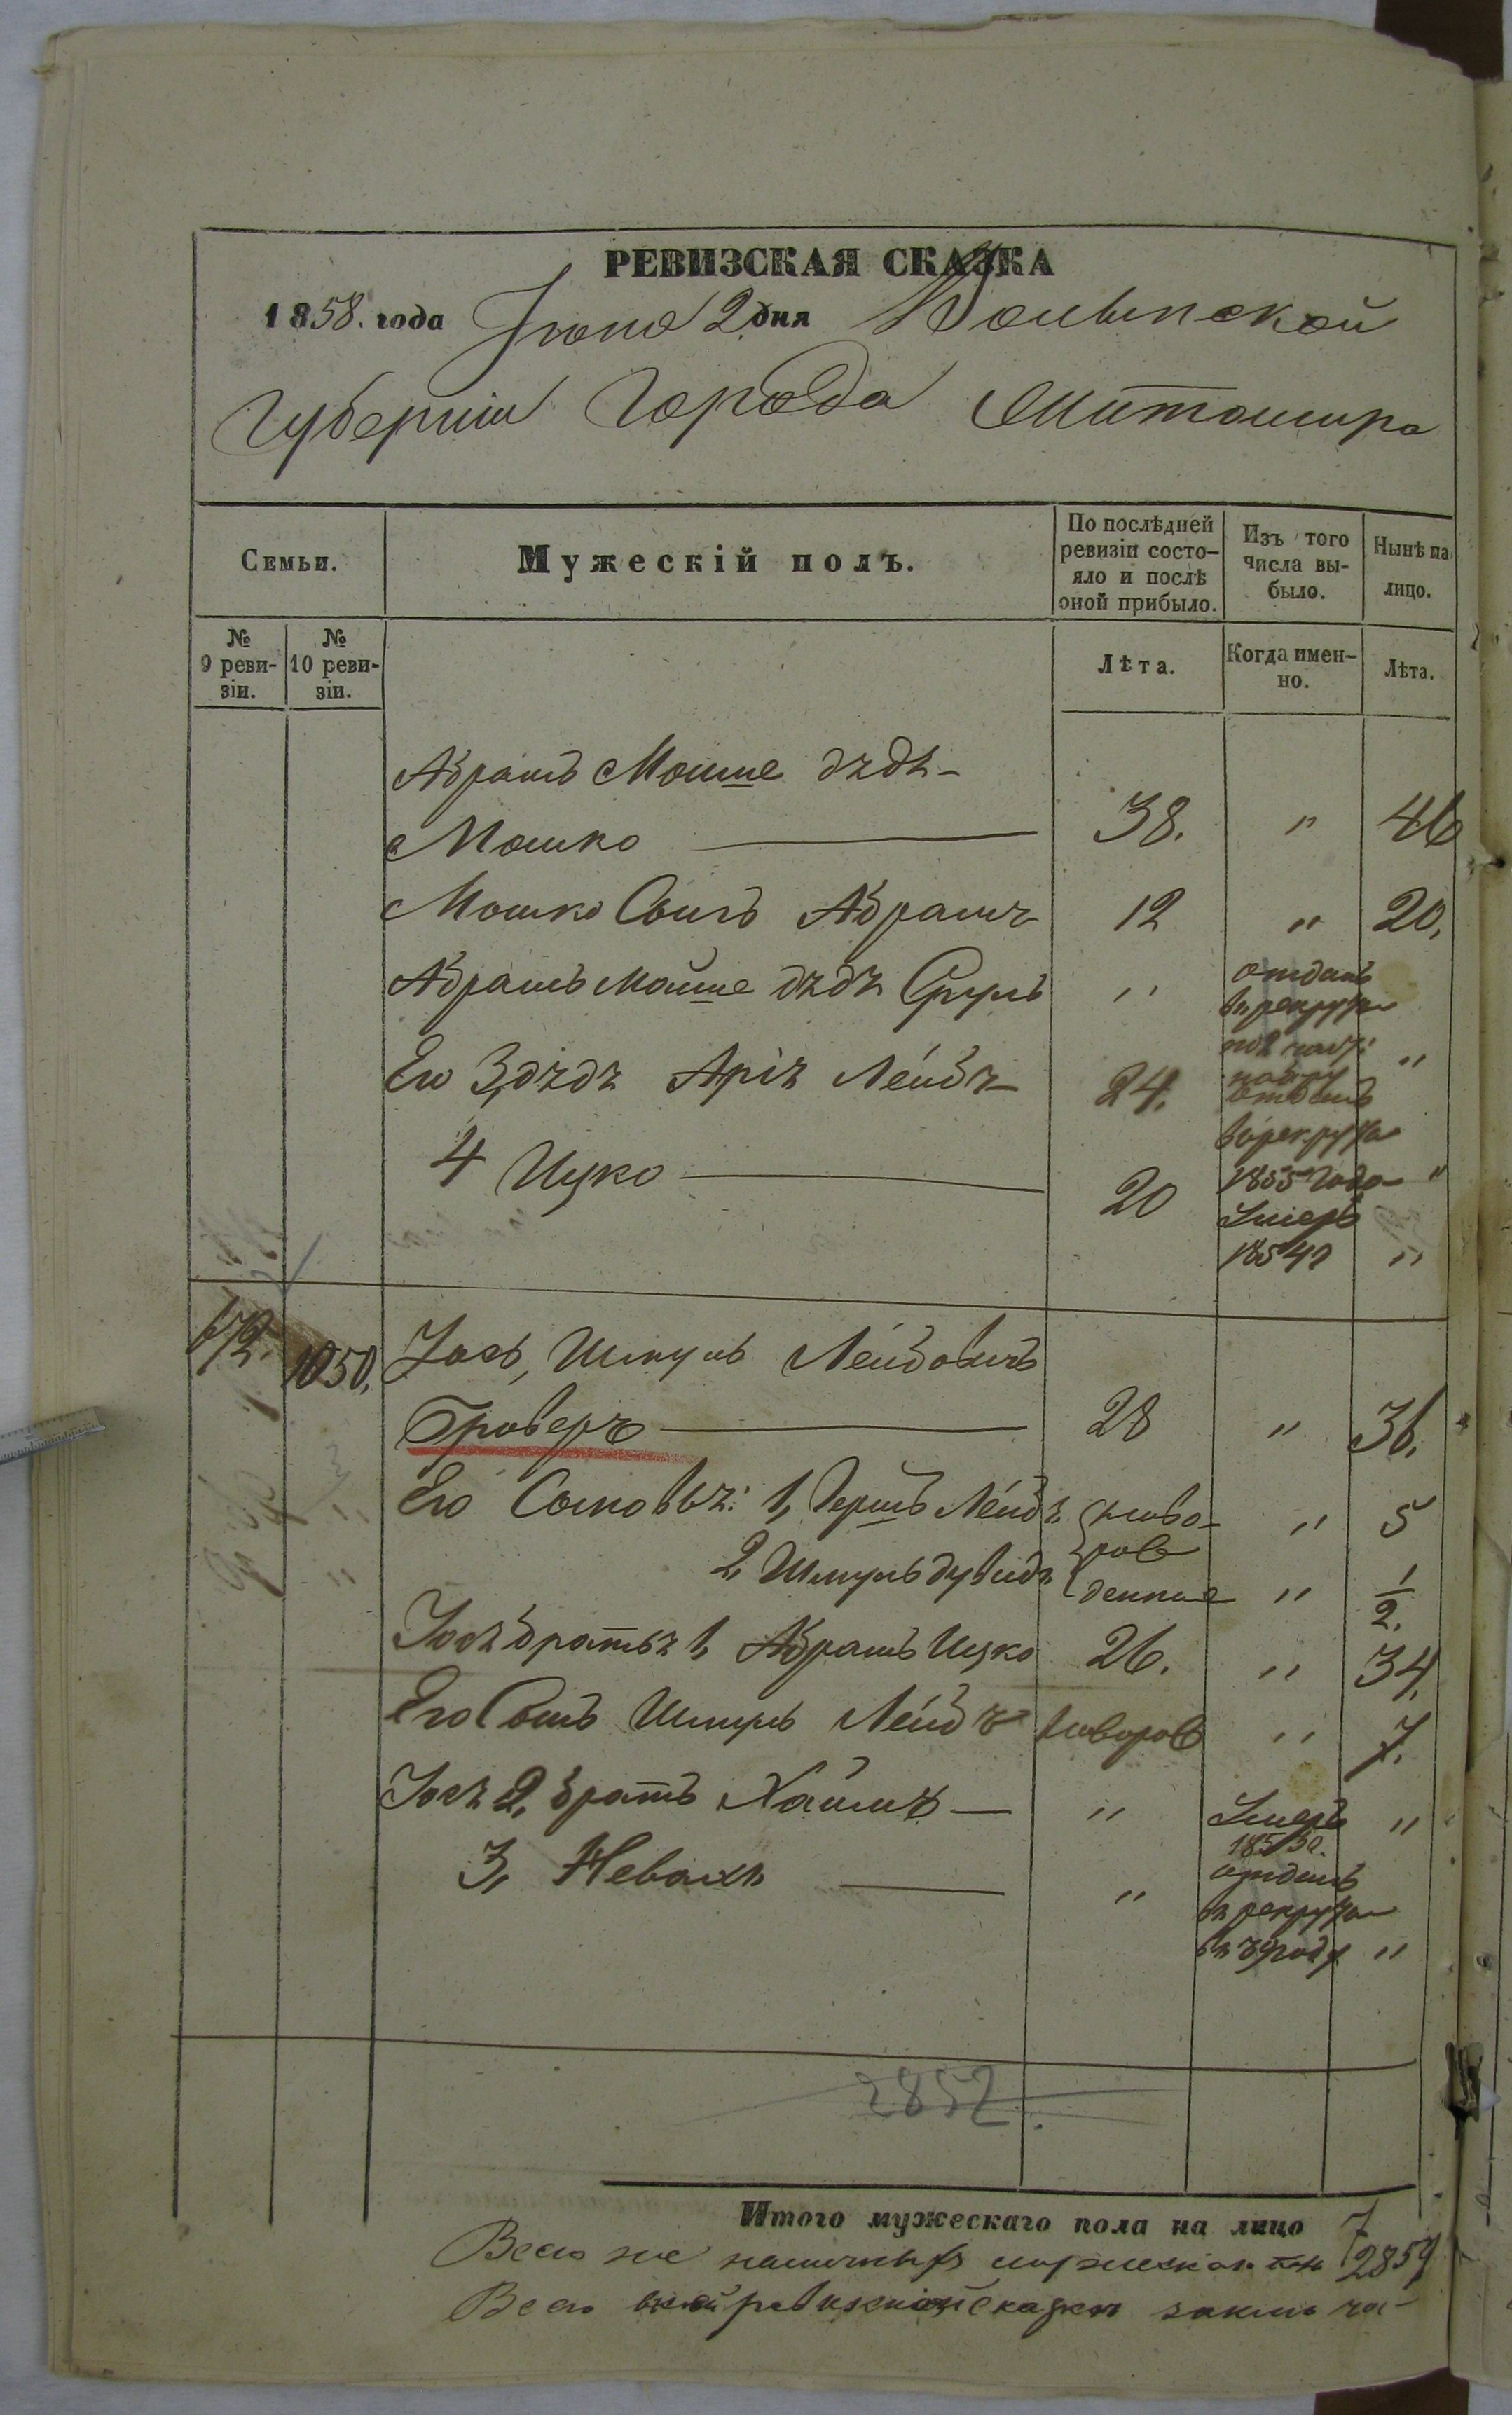 РЕВИЗСКАЯ СКАЗКА
1858. года Іюня 2 дня Волынской
Губерніи Города Житомира
Семьи.
Мужескій полъ.
По послѣдней ревизіи состо-
яло и послѣ оной прибыло.
Изъ того числа вы-
было.
Нынѣ на лицо.
№ 9 реви-
зіи.
№ 10 реви-
зіи.
Лѣта.
Когда имен-
но.
Лѣта.
Абрамъ Мошке дядя
Мошко 38. " 46
Мошко Сынъ Абрамъ 12 " 20.
Абрамъ Мошке дядя Сруль " отданъ в рекруты
Его 3, дядя Аріе Лейбъ 24. отданъ в рекруты 1855 года "
4 Ицко 20 Умеръ 1854 "
672. 1050. Іось, Шмуль Лейбовичъ
Гроверъ 28 " 36.
Его Сыновья: 1, Гершъ Лейбъ новорожденные " 5
2, Шмуль Дувидъ " 1/2.
Іося братья 1, Абрамъ Ицко 26. " 34.
Его Сынъ Шмуль Лейбъ новорож " 7.
Іося 2, братъ Хаимъ " Умеръ 185 "
3, Невахъ " отданъ в рекруты в году "
2852.
Итого мужескаго пола на лицо 7
Всего же наличныхъ мужеска пола 2859
Всего в сей ревизской сказке заключа-